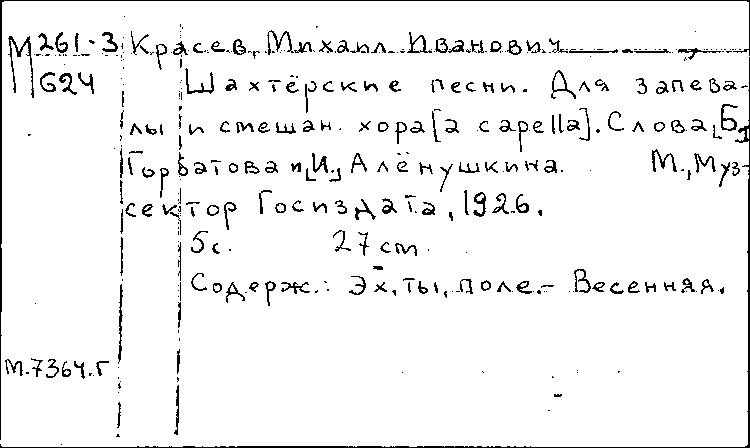 М261-3 Красев, Михаил Иванович
М624 Шахтёрские песни. Для запева-
лы и смешан. хора [a capella]. Слова [Б.]
Горбатова и [И.] Алёнушкина. М., Муз-
сектор Госиздата, 1926.
5с. 27 cm.
Содерж.: Эх, ты, поле. – Весенняя.
М.7364.г